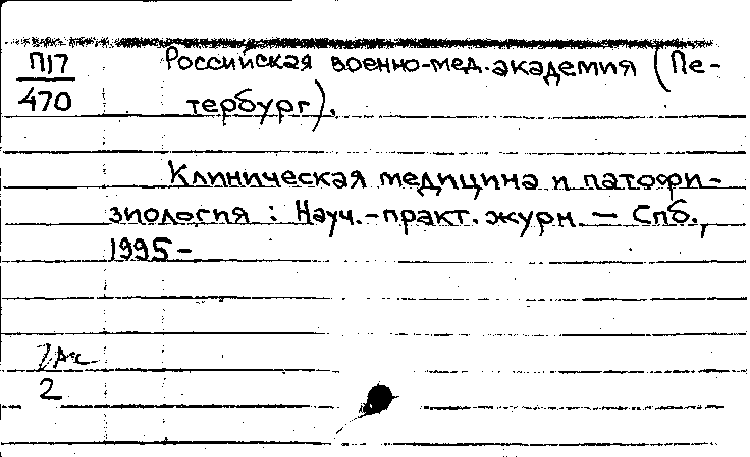 П17 Российская военно-мед. академия (Пе-
470 тербург).
Клиническая медицина и патофи-
зиология : Науч.-практ. журн. — Спб.,
1995-
2